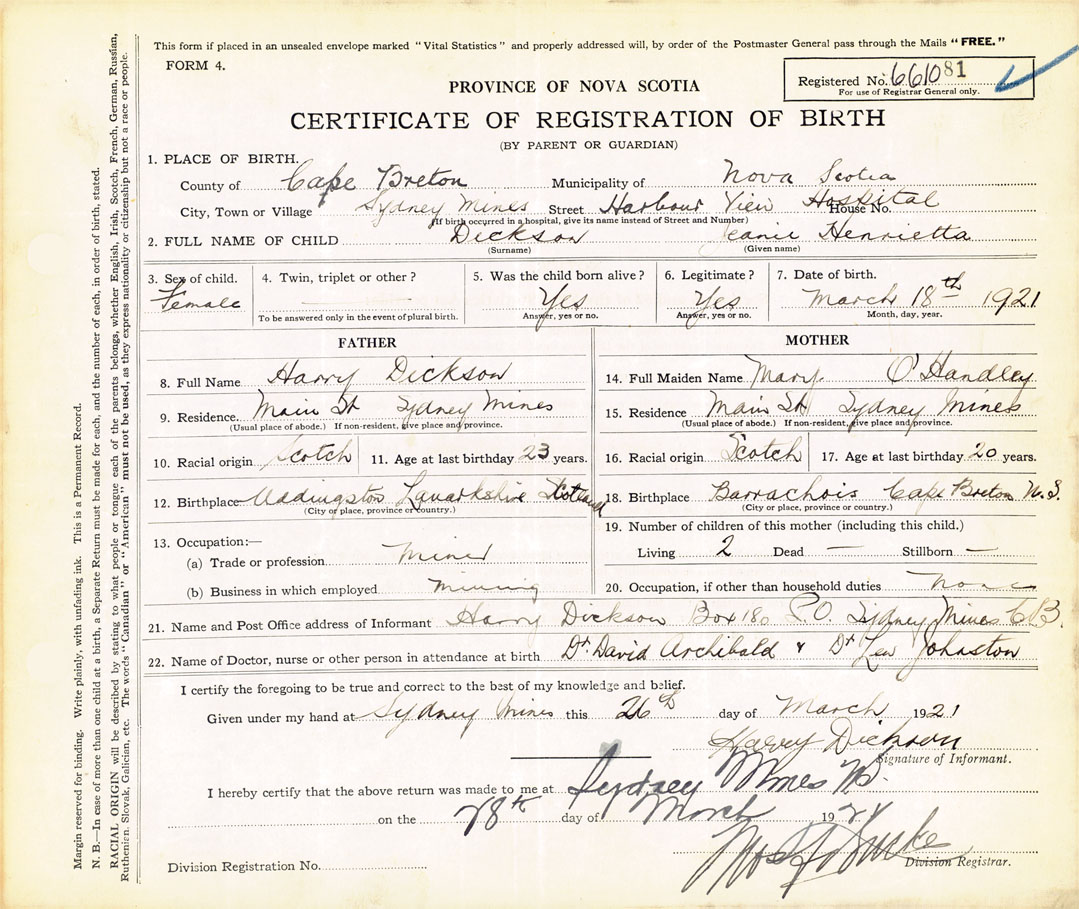 This form if placed in an unsealed envelope marked "Vital Statistics" and properly addressed will, by order of the Postmaster General pass through the Mails "FREE."
FORM 4.
Registered No. 661081
For use of Registrar General only.
PROVINCE OF NOVA SCOTIA
CERTIFICATE OF REGISTRATION OF BIRTH
(BY PARENT OR GUARDIAN)
1. PLACE OF BIRTH.
County of Cape Breton Municipality of Nova Scotia
City, Town or Village Sydney Mines Street Harbour View Hospital House No.
(If birth occurred in a hospital, give its name instead of Street and Number)
2. FULL NAME OF CHILD Dickson Jeanie Henrietta
(Surname) (Given name)
3. Sex of child. 4. Twin, triplet or other? 5. Was the child born alive? 6. Legitimate? 7. Date of birth.
Female Yes Yes March 18th 1921
To be answered only in the event of plural birth. Answer, yes or no. Answer, yes or no. Month, day, year.
FATHER
8. Full Name Harry Dickson
9. Residence. Main St Sydney Mines
(Usual place of abode.) If non-resident, give place and province.
10. Racial origin Scotch 11. Age at last birthday 23 years.
12. Birthplace Uddingston Lanarkshire Scotland
(City or place, province or country.)
13. Occupation:—
(a) Trade or profession Miner
(b) Business in which employed mining
MOTHER
14. Full Maiden Name Mary O'Handley
15. Residence Main St Sydney Mines
(Usual place of abode.) If non-resident, give place and province.
16. Racial origin Scotch 17. Age at last birthday 20 years.
18. Birthplace Barrachois Cape Breton N.S.
(City or place, province or country.)
19. Number of children of this mother (including this child.)
Living 2 Dead — Stillborn —
20. Occupation, if other than household duties None
21. Name and Post Office address of Informant Harry Dickson Box 180 P.O. Sydney Mines C.B.
22. Name of Doctor, nurse or other person in attendance at birth Dr. David Archibald & Dr Len Johnston
I certify the foregoing to be true and correct to the best of my knowledge and belief.
Given under my hand at Sydney Mines this 26th day of March 1921
Harry Dickson
Signature of Informant.
I hereby certify that the above return was made to me at Sydney Mines NS.
on the 28th day of March 1921
Division Registrar.
Division Registration No.
Margin reserved for binding. Write plainly, with unfading ink. This is a Permanent Record.
N. B.—In case of more than one child at a birth, a Separate Return must be made for each, and the number of each, in order of birth, stated.
RACIAL ORIGIN will be described by stating to what people or tongue each of the parents belongs, whether English, Irish, Scotch, French, German, Russian,
Ruthenian, Slovak, Galician, etc. The words "Canadian" or "American" must not be used, as they express nationality or citizenship but not a race or people.